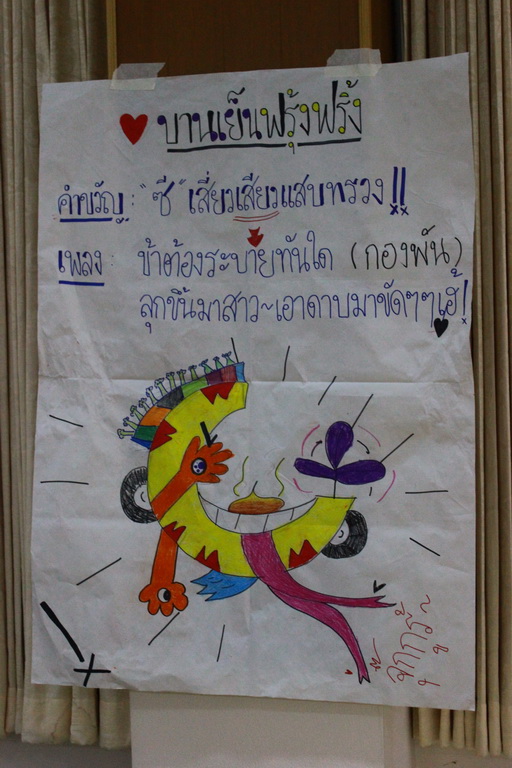 บานเย็นฟรุ้งฟริ้ง
คำขวัญ : "ซี" เสี่ยวเสียวแสบทรวง!!
เพลง : ข้าต้องระบายทันใด (กองพัน)
ลุกขึ้นมาสาว~เอาดาบมาขัดๆๆเฮ้!
จุกกรู้~